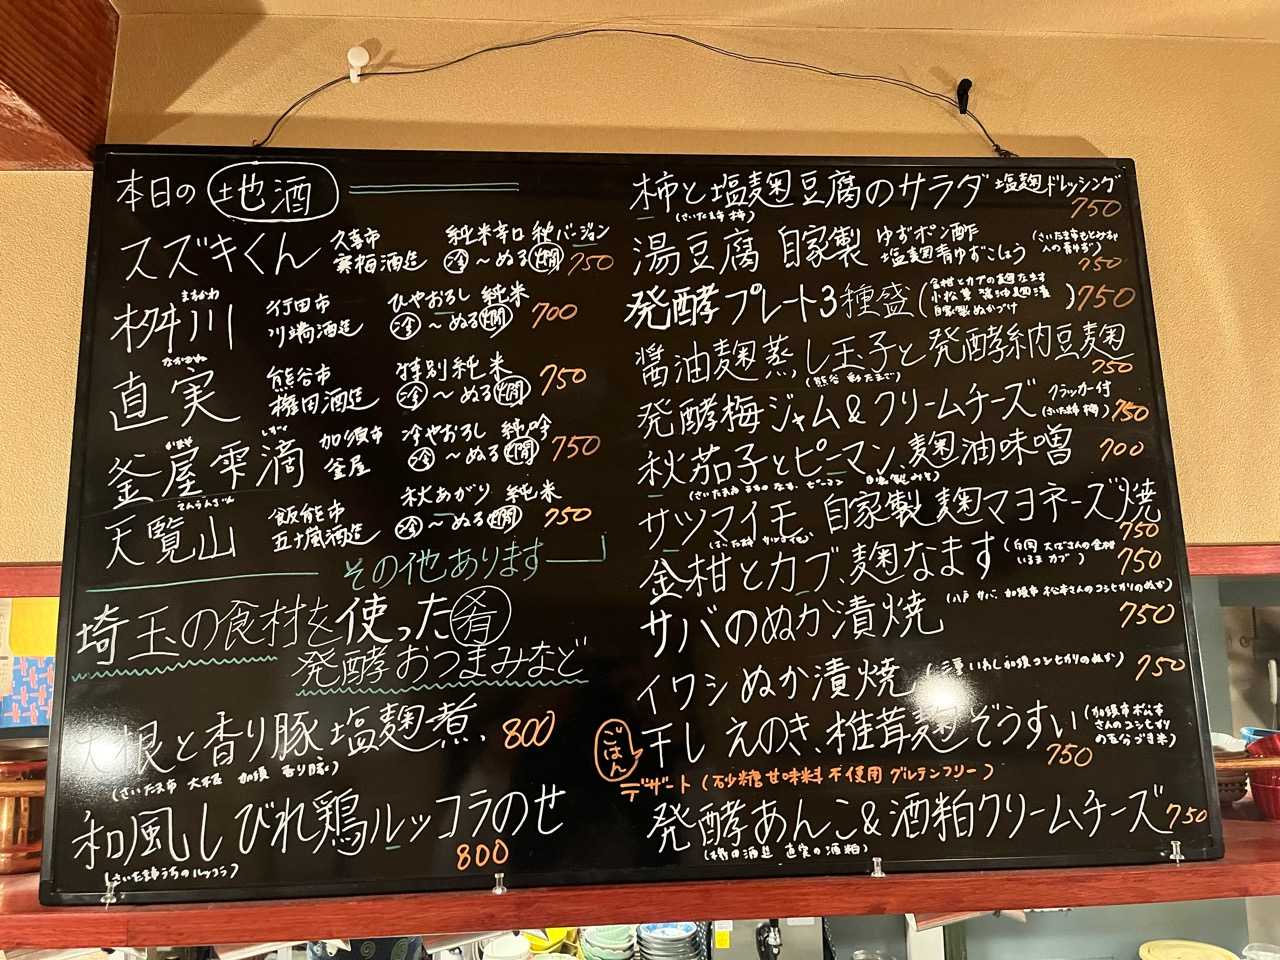 本日の 地酒
スズキくん 久喜市 寒梅酒造 純米辛口 純バージョン 冷〜ぬる燗 750
ますかわ
桝川 行田市 川端酒造 ひやおろし 純米 冷〜ぬる燗 700
なおざね
直実 熊谷市 権田酒造 特別純米 冷〜ぬる燗 750
かまや しずく
釜屋 雫滴 加須市 釜屋 冷やおろし 純吟 冷〜ぬる燗 750
てんらんざん
天覧山 飯能市 五十嵐酒造 秋あがり 純米 冷〜ぬる燗 750
その他あります
埼玉の食材を使った肴
発酵おつまみなど
大根と香り豚塩麹煮、800
(さいたま市 大根 加須 香り豚)
和風しびれ鶏ルッコラのせ
800
(さいたま市うちのルッコラ)
柿と塩麹豆腐のサラダ 塩麹ドレッシング
(さいたま市 柿) 750
湯豆腐 自家製 ゆずポン酢 塩麹青ゆずこしょう
750
発酵プレート3種盛 (金柑とカブの麹なます 小松菜 醤油麹漬 自家製ぬかづけ) 750
醤油麹蒸し玉子と発酵納豆麹
(熊谷 彩たまご) 750
発酵梅ジャム&クリームチーズ クラッカー付 (さいたま市 梅) 750
秋茄子とピーマン、麹油味噌 700
サツマイモ、自家製麹マヨネーズ焼
750
金柑とカブ、麹なます (白岡 大ださんの金柑 いるま カブ) 750
サバのぬか漬焼 (八戸 サバ、加須市 松本さんのコシヒカリのぬか)
750
イワシぬか漬焼 (三重 いわし 加須コシヒカリのぬか) 750
ごはん 干しえのき、椎茸麹ぞうすい (加須市松本さんのコシヒカリの五分づき米)
750
デザート (砂糖 甘味料 不使用 グルテンフリー)
発酵あんこ&酒粕クリームチーズ 750
(権田酒造 直実の酒粕)